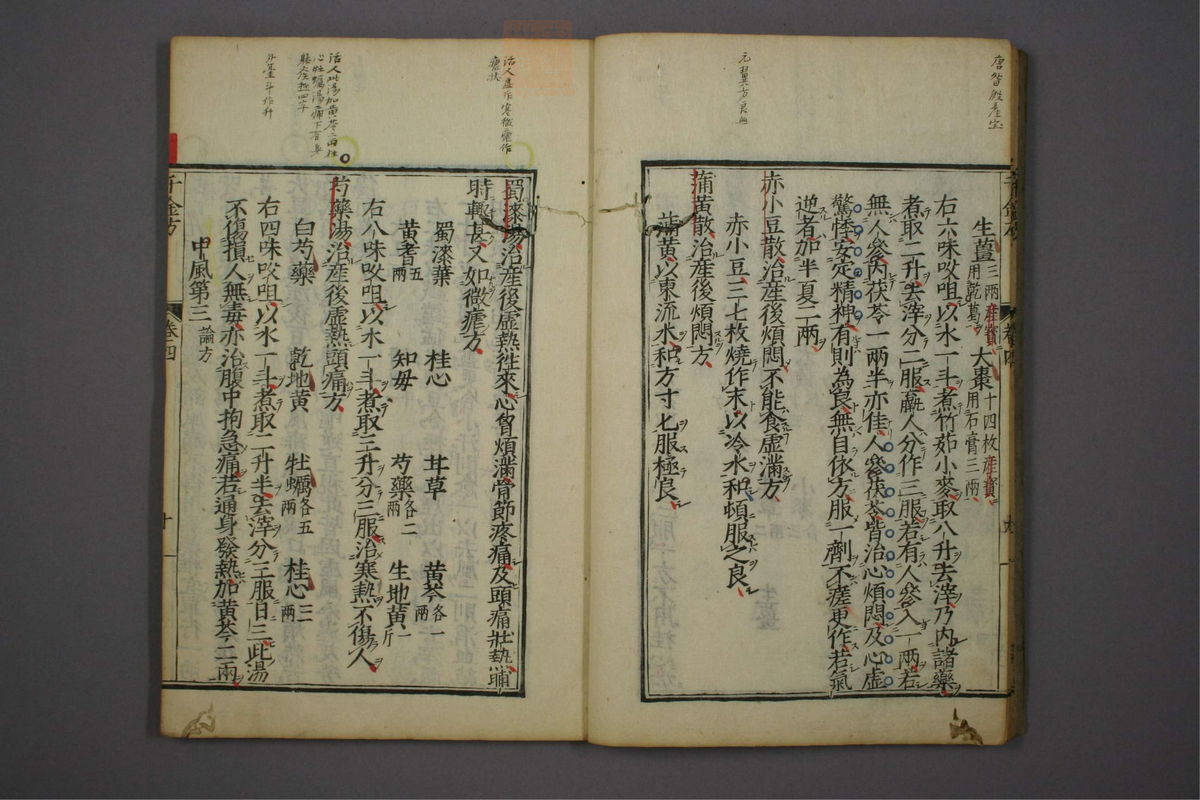 生薑三兩用乾葛産寶大棗十四枚産寶用石膏三兩
右六味㕮咀以水一斗煮竹茹小麥取八升去滓乃內諸藥
煮取二升去滓分二服羸人分作三服若有人參入一兩若
無人參內茯苓一兩半亦佳人參茯苓皆治心煩悶及心虛
驚悸安定精神有則為良無自依方服一劑不瘥更作若氣
逆者加半夏二兩
赤小豆散治産後煩悶不能食虛滿方
赤小豆三七枚燒作末以冷水和頓服之良
蒲黃散治産後煩悶方
蒲黃以東流水和方寸匕服極良
蜀漆湯治産後虛熱徃來心胷煩滿骨節疼痛及頭痛壯熱晡
時輙甚又如微瘧方
蜀漆葉 桂心 甘草 黃芩各一兩
黃耆五兩 知母 芍藥各二兩 生地黃一斤
右八味㕮咀以水一斗煮取三升分三服治寒熱不傷人
芍藥湯治産後虛熱頭痛方
白芍藥 乾地黃 牡蠣各五兩 桂心三兩
右四味㕮咀以水一斗煮取二升半去滓分三服日三此湯
不傷損人無毒亦治腹中拘急痛若通身發熱加黃芩二兩
中風第三 論方
千金方 卷四 十